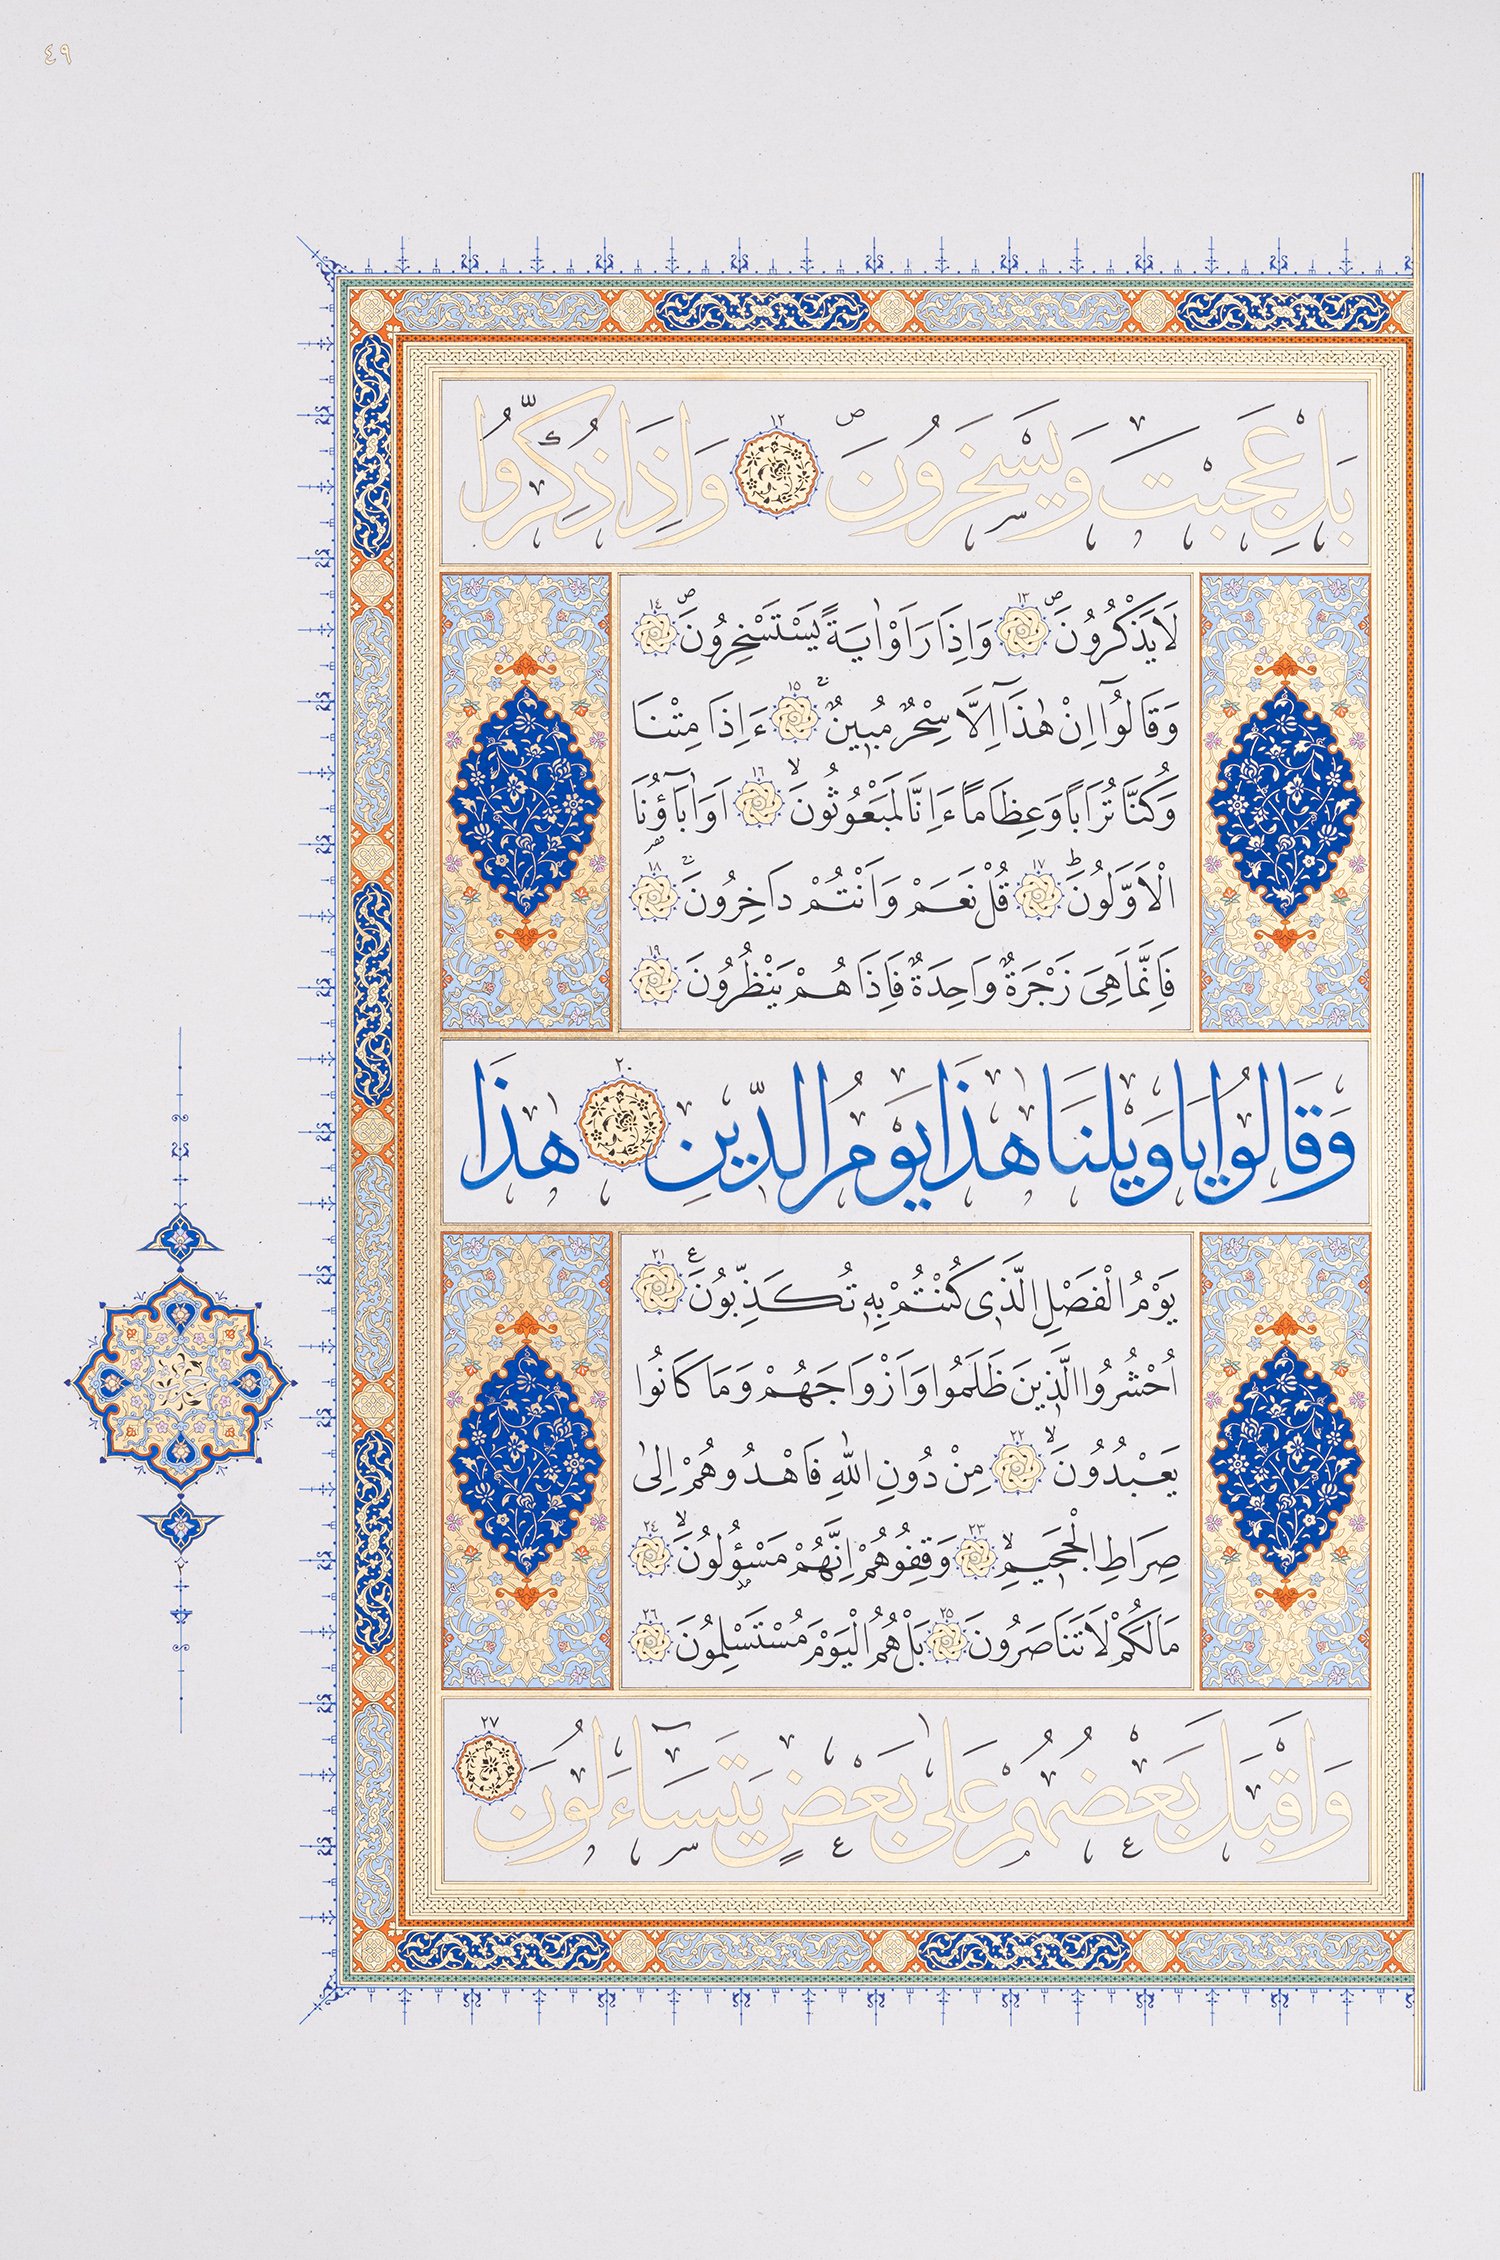 ٤٩
بَلْ عَجِبْتَ وَيَسْخَرُونَ ۱۲ وَاِذَا ذُكِّرُوا
لَا يَذْكُرُونَ ۱۳ وَاِذَا رَاَوْا اٰيَةً يَسْتَسْخِرُونَ ۱٤
وَقَالُوٓا اِنْ هٰذَٓا اِلَّا سِحْرٌ مُب۪ينٌ ۱٥ ءَاِذَا مِتْنَا
وَكُنَّا تُرَابًا وَعِظَامًا ءَاِنَّا لَمَبْعُوثُونَ ۱٦ اَوَاٰبَٓاؤُ۬نَا
الْاَوَّلُونَ ۱٧ قُلْ نَعَمْ وَاَنْتُمْ دَاخِرُونَ ۱٨
فَاِنَّمَا هِيَ زَجْرَةٌ وَاحِدَةٌ فَاِذَا هُمْ يَنْظُرُونَ ۱٩
وَقَالُوا يَا وَيْلَنَا هٰذَا يَوْمُ الدّ۪ينِ ۲۰ هٰذَا
يَوْمُ الْفَصْلِ الَّذ۪ي كُنْتُمْ بِه۪ تُكَذِّبُونَ ۲۱
اُحْشُرُوا الَّذ۪ينَ ظَلَمُوا وَاَزْوَاجَهُمْ وَمَا كَانُوا
يَعْبُدُونَ ۲۲ مِنْ دُونِ اللّٰهِ فَاهْدُوهُمْ اِلٰى
صِرَاطِ الْجَح۪يمِ ۲۳ وَقِفُوهُمْ اِنَّهُمْ مَسْؤُ۫لُونَ ۲٤
مَا لَكُمْ لَا تَنَاصَرُونَ ۲٥ بَلْ هُمُ الْيَوْمَ مُسْتَسْلِمُونَ ۲٦
وَاَقْبَلَ بَعْضُهُمْ عَلٰى بَعْضٍ يَتَسَٓاءَلُونَ ۲٧